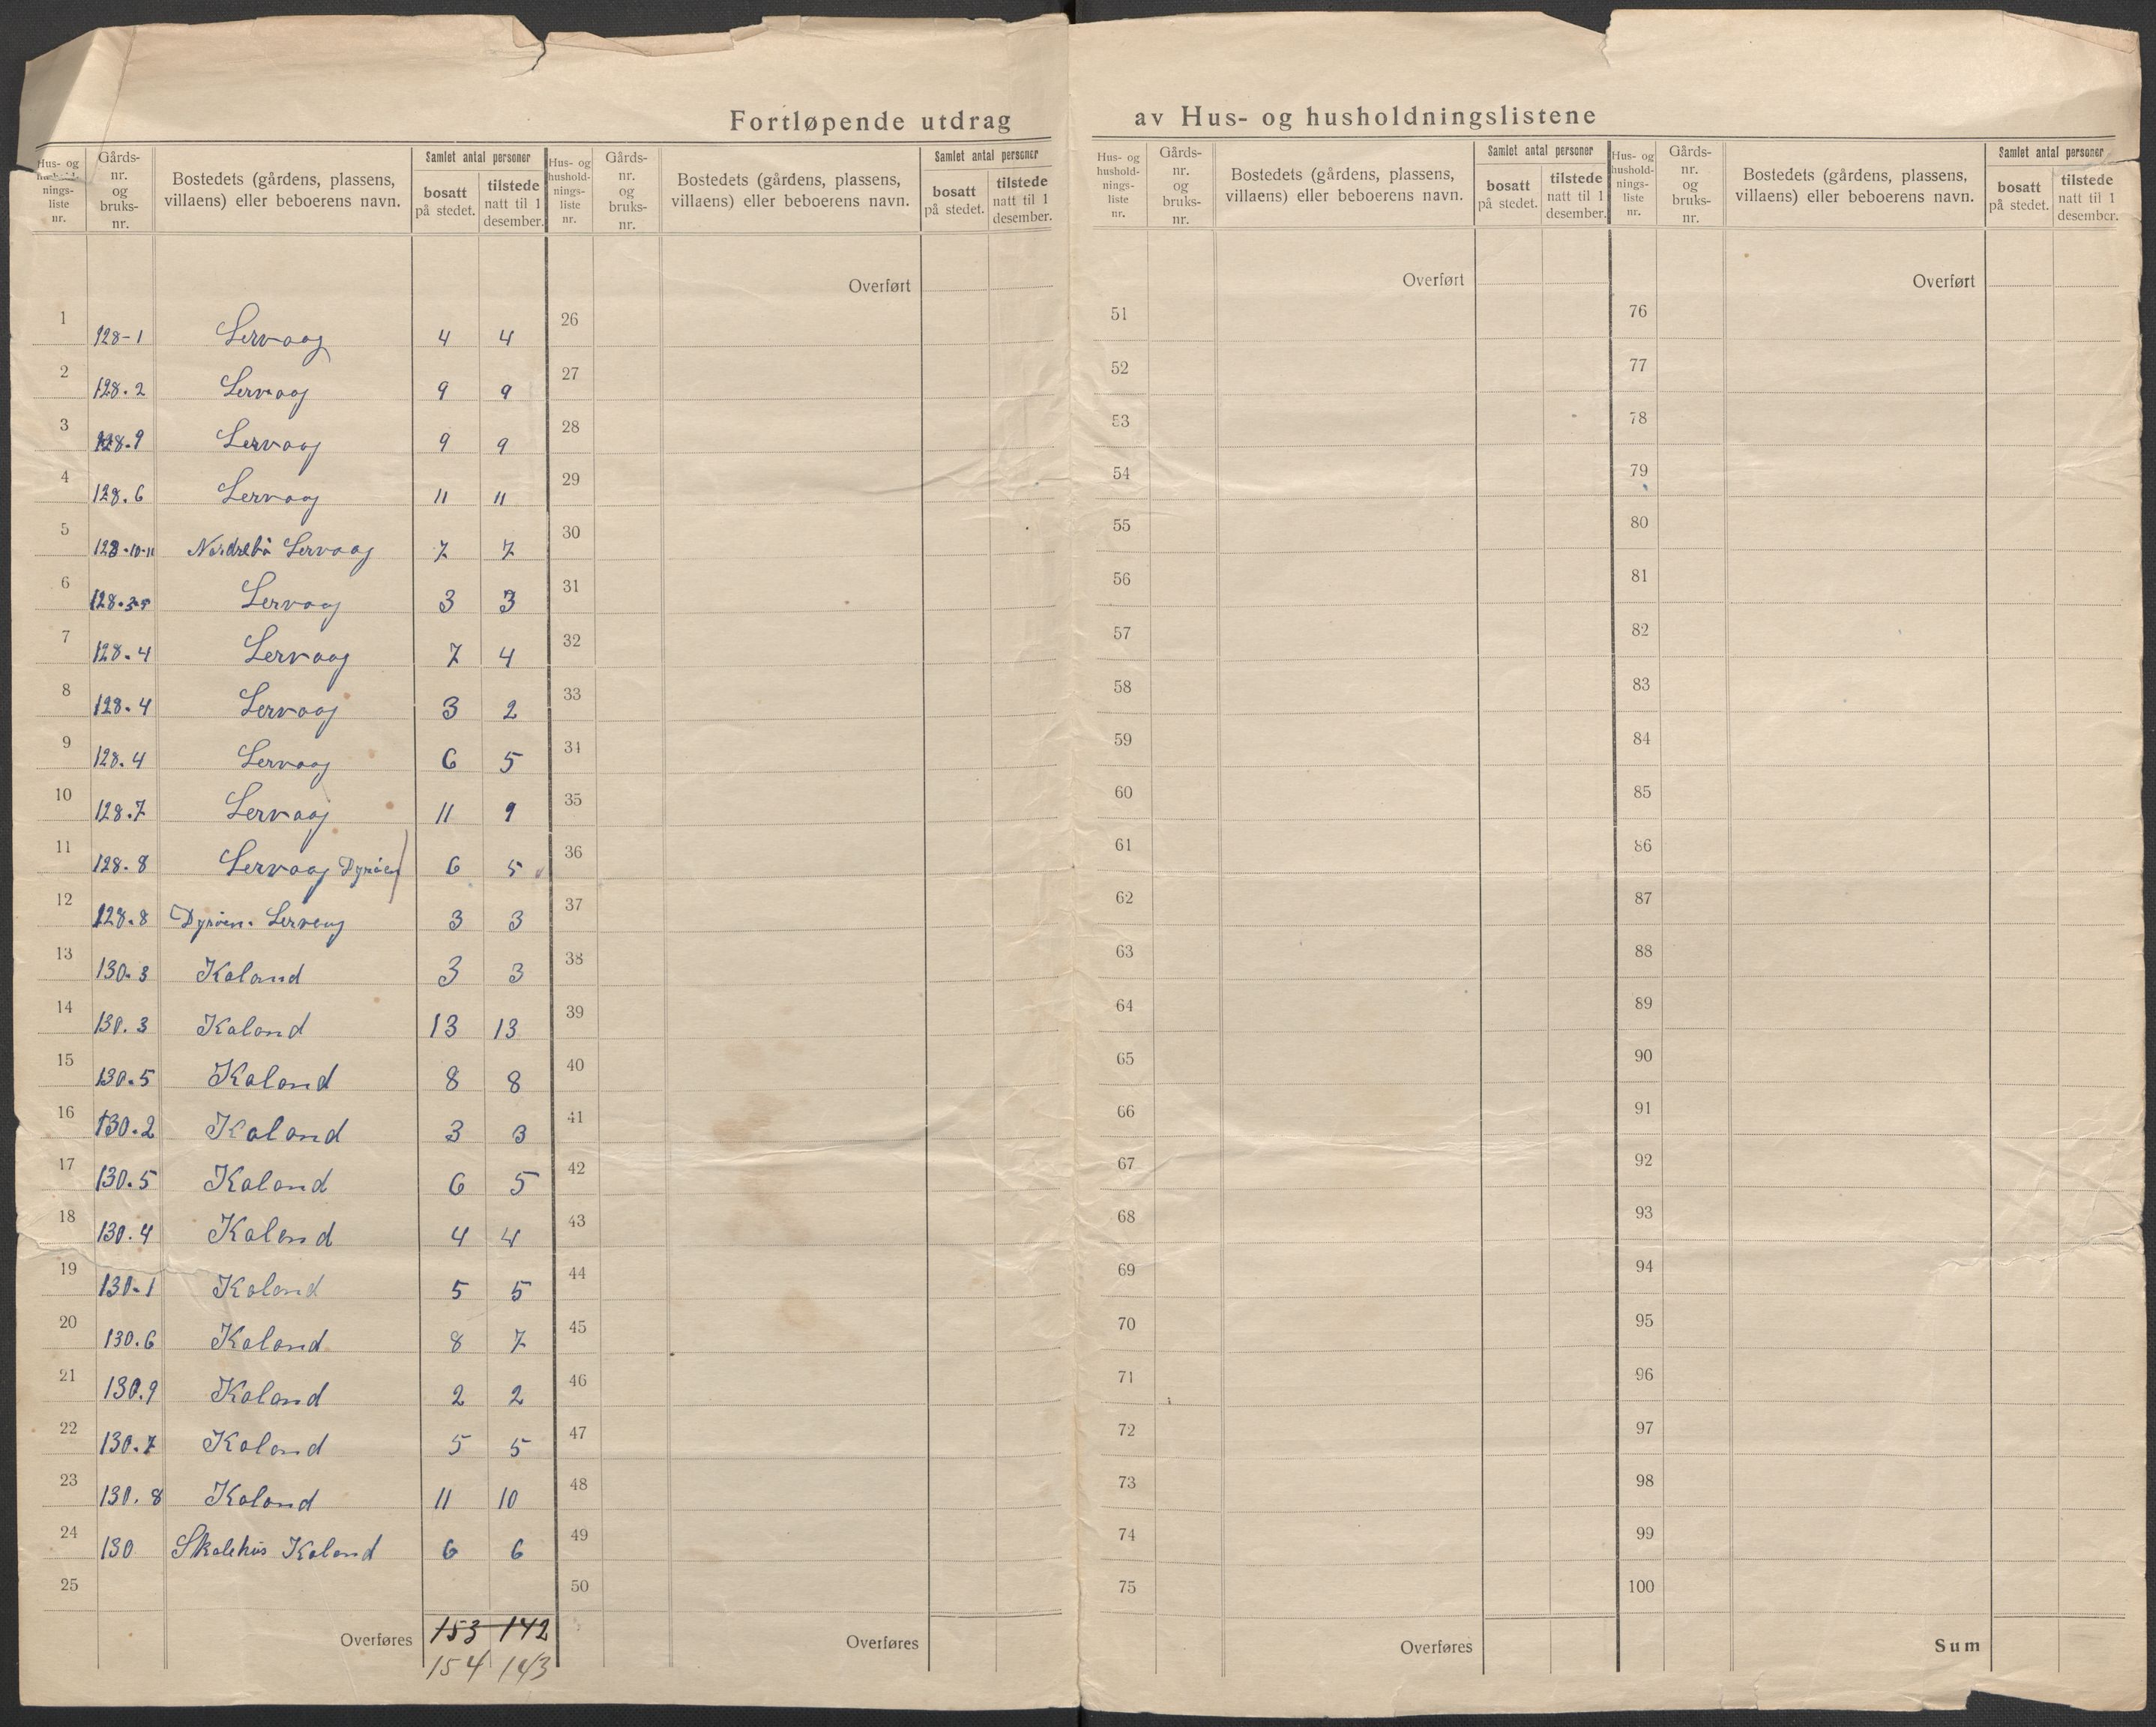 Fortløpende utdrag av Hus- og husholdningslistene
Hus- og hushold-nings-liste nr. | Gårds-nr. og bruks-nr. | Bostedets (gårdens, plassens, villaens) eller beboerens navn. | Samlet antal personer | bosatt på stedet. | tilstede natt til 1 desember.
1 128-1 Lervaag 4 4
2 128.2 Lervaag 9 9
3 128.9 Lervaag 9 9
4 128.6 Lervaag 11 11
5 128-10-11 Nordrebö Lervaag 7 7
6 128.3-5 Lervaag 3 3
7 128.4 Lervaag 7 4
8 128.4 Lervaag 3 2
9 128.4 Lervaag 6 5
10 128.7 Lervaag 11 9
11 128.8 Lervaag Dyröen 6 5
12 128.8 Dyröen. Lervaag 3 3
13 130.3 Kaland 3 3
14 130.3 Kaland 13 13
15 130.5 Kaland 8 8
16 130.2 Kaland 3 3
17 130.5 Kaland 6 5
18 130.4 Kaland 4 4
19 130.1 Kaland 5 5
20 130.6 Kaland 8 7
21 130.9 Kaland 2 2
22 130.7 Kaland 5 5
23 130.8 Kaland 11 10
24 130 Skolehus Kaland 6 6
25
Overføres 153 142
154 143
Hus- og hushold-nings-liste nr. | Gårds-nr. og bruks-nr. | Bostedets (gårdens, plassens, villaens) eller beboerens navn. | Samlet antal personer | bosatt på stedet. | tilstede natt til 1 desember.
Overført
26
27
28
29
30
31
32
33
34
35
36
37
38
39
40
41
42
43
44
45
46
47
48
49
50
Overføres
Hus- og hushold-nings-liste nr. | Gårds-nr. og bruks-nr. | Bostedets (gårdens, plassens, villaens) eller beboerens navn. | Samlet antal personer | bosatt på stedet. | tilstede natt til 1 desember.
Overført
51
52
53
54
55
56
57
58
59
60
61
62
63
64
65
66
67
68
69
70
71
72
73
74
75
Overføres
Hus- og hushold-nings-liste nr. | Gårds-nr. og bruks-nr. | Bostedets (gårdens, plassens, villaens) eller beboerens navn. | Samlet antal personer | bosatt på stedet. | tilstede natt til 1 desember.
Overført
76
77
78
79
80
81
82
83
84
85
86
87
88
89
90
91
92
93
94
95
96
97
98
99
100
Sum